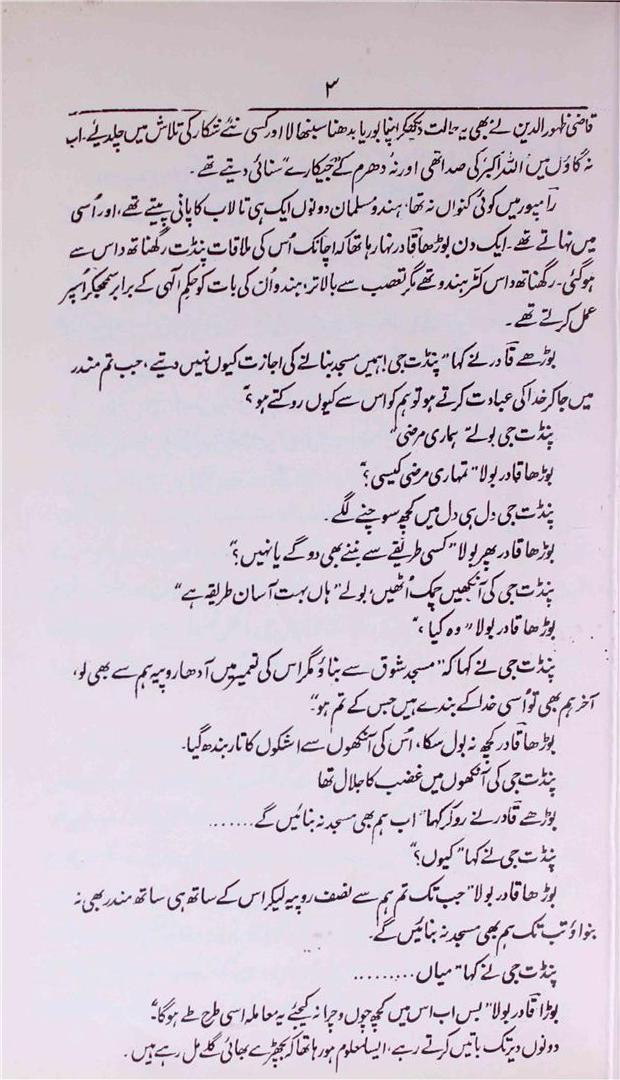 ۳
قاضی ظہور الدین نے بھی یہ حالت دیکھکر اپنا بوریا بدھنا سنبھالا اور کسی نئے شکار کی تلاش میں چلدیے۔ اب
نہ گاؤں میں اللہ اکبر کی صدا تھی اور نہ دھرم کے "جیکارے" سنائی دیتے تھے۔
رامپور میں کوئی کنواں نہ تھا، ہندو مسلمان دونوں ایک ہی تالاب کا پانی پیتے تھے، اور اُسی
میں نہاتے تھے۔ ایک دن بوڑھا قادر نہا رہا تھا کہ اچانک اُس کی ملاقات پنڈت رگھناتھ داس سے
ہوگئی۔ رگھناتھ داس کٹر ہندو تھے مگر تعصب سے بالاتر، ہندو اُن کی بات کو حکمِ الٰہی کے برابر سمجھکر اُسپر
عمل کرتے تھے۔
بوڑھے قادر نے کہا "پنڈت جی! ہمیں مسجد بنانے کی اجازت کیوں نہیں دیتے، جب تم مندر
میں جا کر خدا کی عبادت کرتے ہو تو ہم کو اس سے کیوں روکتے ہو؟"
پنڈت جی بولے "ہماری مرضی"
بوڑھا قادر بولا "تمہاری مرضی کیسی؟"
پنڈت جی دل ہی دل میں کچھ سوچنے لگے۔
بوڑھا قادر پھر بولا "کسی طریقے سے بننے بھی دو گے یا نہیں؟"
پنڈت جی کی آنکھیں چمک اُٹھیں، بولے "ہاں بہت آسان طریقہ ہے"
بوڑھا قادر بولا "وہ کیا،"
پنڈت جی نے کہا کہ "مسجد شوق سے بناؤ مگر اس کی تعمیر میں آدھا روپیہ ہم سے بھی لو،
آخر ہم بھی تو اُسی خدا کے بندے ہیں جس کے تم ہو"۔
بوڑھا قادر کچھ نہ بول سکا، اُس کی آنکھوں سے اشکوں کا تار بندھ گیا۔
پنڈت جی کی آنکھوں میں غضب کا جلال تھا
بوڑھے قادر نے رو کر کہا "اب ہم بھی مسجد نہ بنائیں گے.......
پنڈت جی نے کہا "کیوں؟"
بوڑھا قادر بولا "جب تک تم ہم سے نصف روپیہ لیکر اس کے ساتھ ہی ساتھ مندر بھی نہ
بنواؤ تب تک ہم بھی مسجد نہ بنائیں گے۔
پنڈت جی نے کہا "میاں.........
بوڑا قادر بولا "بس اب اس میں کچھ چوں وچرا نہ کیجئے یہ معاملہ اسی طرح طے ہوگا"۔
دونوں دیر تک باتیں کرتے رہے، ایسا معلوم ہو رہا تھا کہ بچھڑے بھائی گلے مل رہے ہیں۔